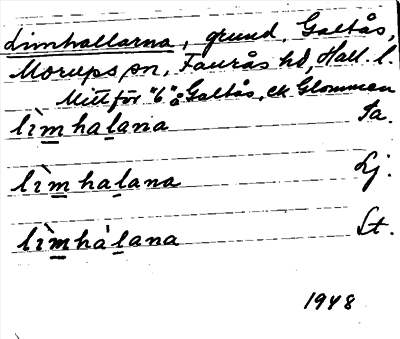 Limhallarna, grund, Galtås,
Morups sn, Faurås hd, Hall. l.
Mitt för "6" å Galtås, ek Glommen
lìmhalana Ta.
lìmhalana Lj.
lìmhálana St.
1948